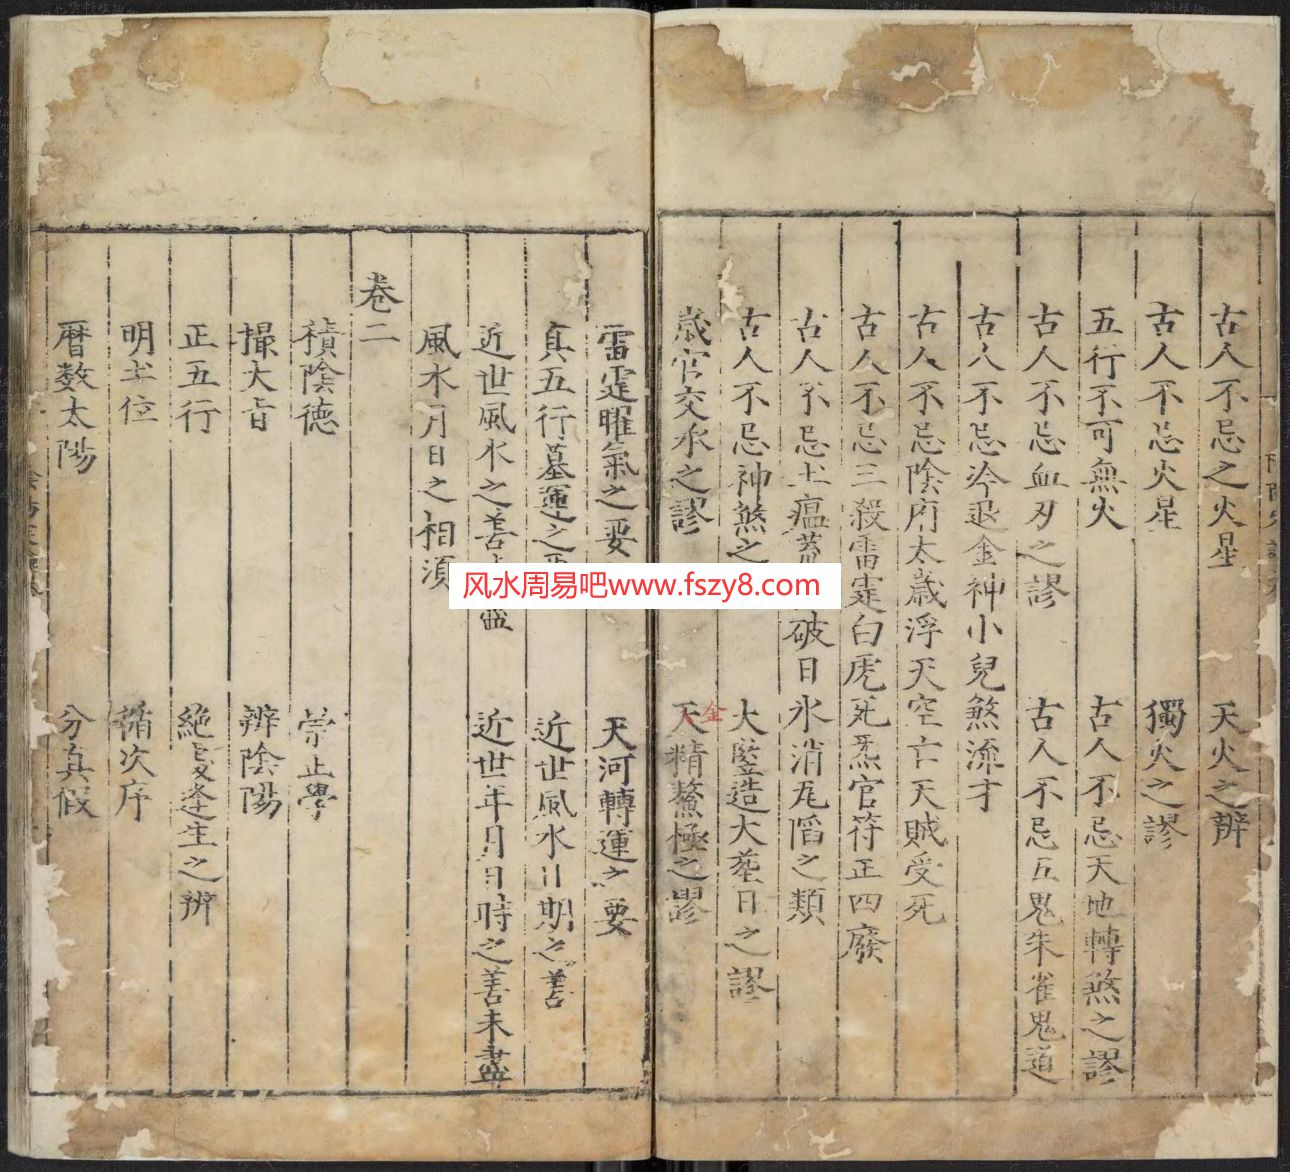 古人不忌之火星 天火之辨
古人不忌火星 獨火之謬
五行不可無火 古人不忌天地轉煞之謬
古人不忌血刃之謬 古人不忌五鬼朱雀鬼道
古人不忌冷退金神小兒煞流才
古人不忌陰府太歲浮天空亡天賊受死
古人不忌三殺雷霆白虎死炁官符正四廢
古人不忌土瘟 破日氷消瓦陷之類
古人不忌神煞之 大竪造大塟日之謬
歲官交承之謬 天金精鰲極之謬
雷霆曜氣之要 天河轉運之要
真五行墓運之 近世風水日期之善
近世風水之善 盡 近世年月日時之善未盡
風水月日之相須
卷二
積陰德 崇正學
撮大旨 辨陰陽
正五行 絶處逢生之辨
明坐位 循次序
曆数太陽 分真假
风水周易吧www.fszy8.com